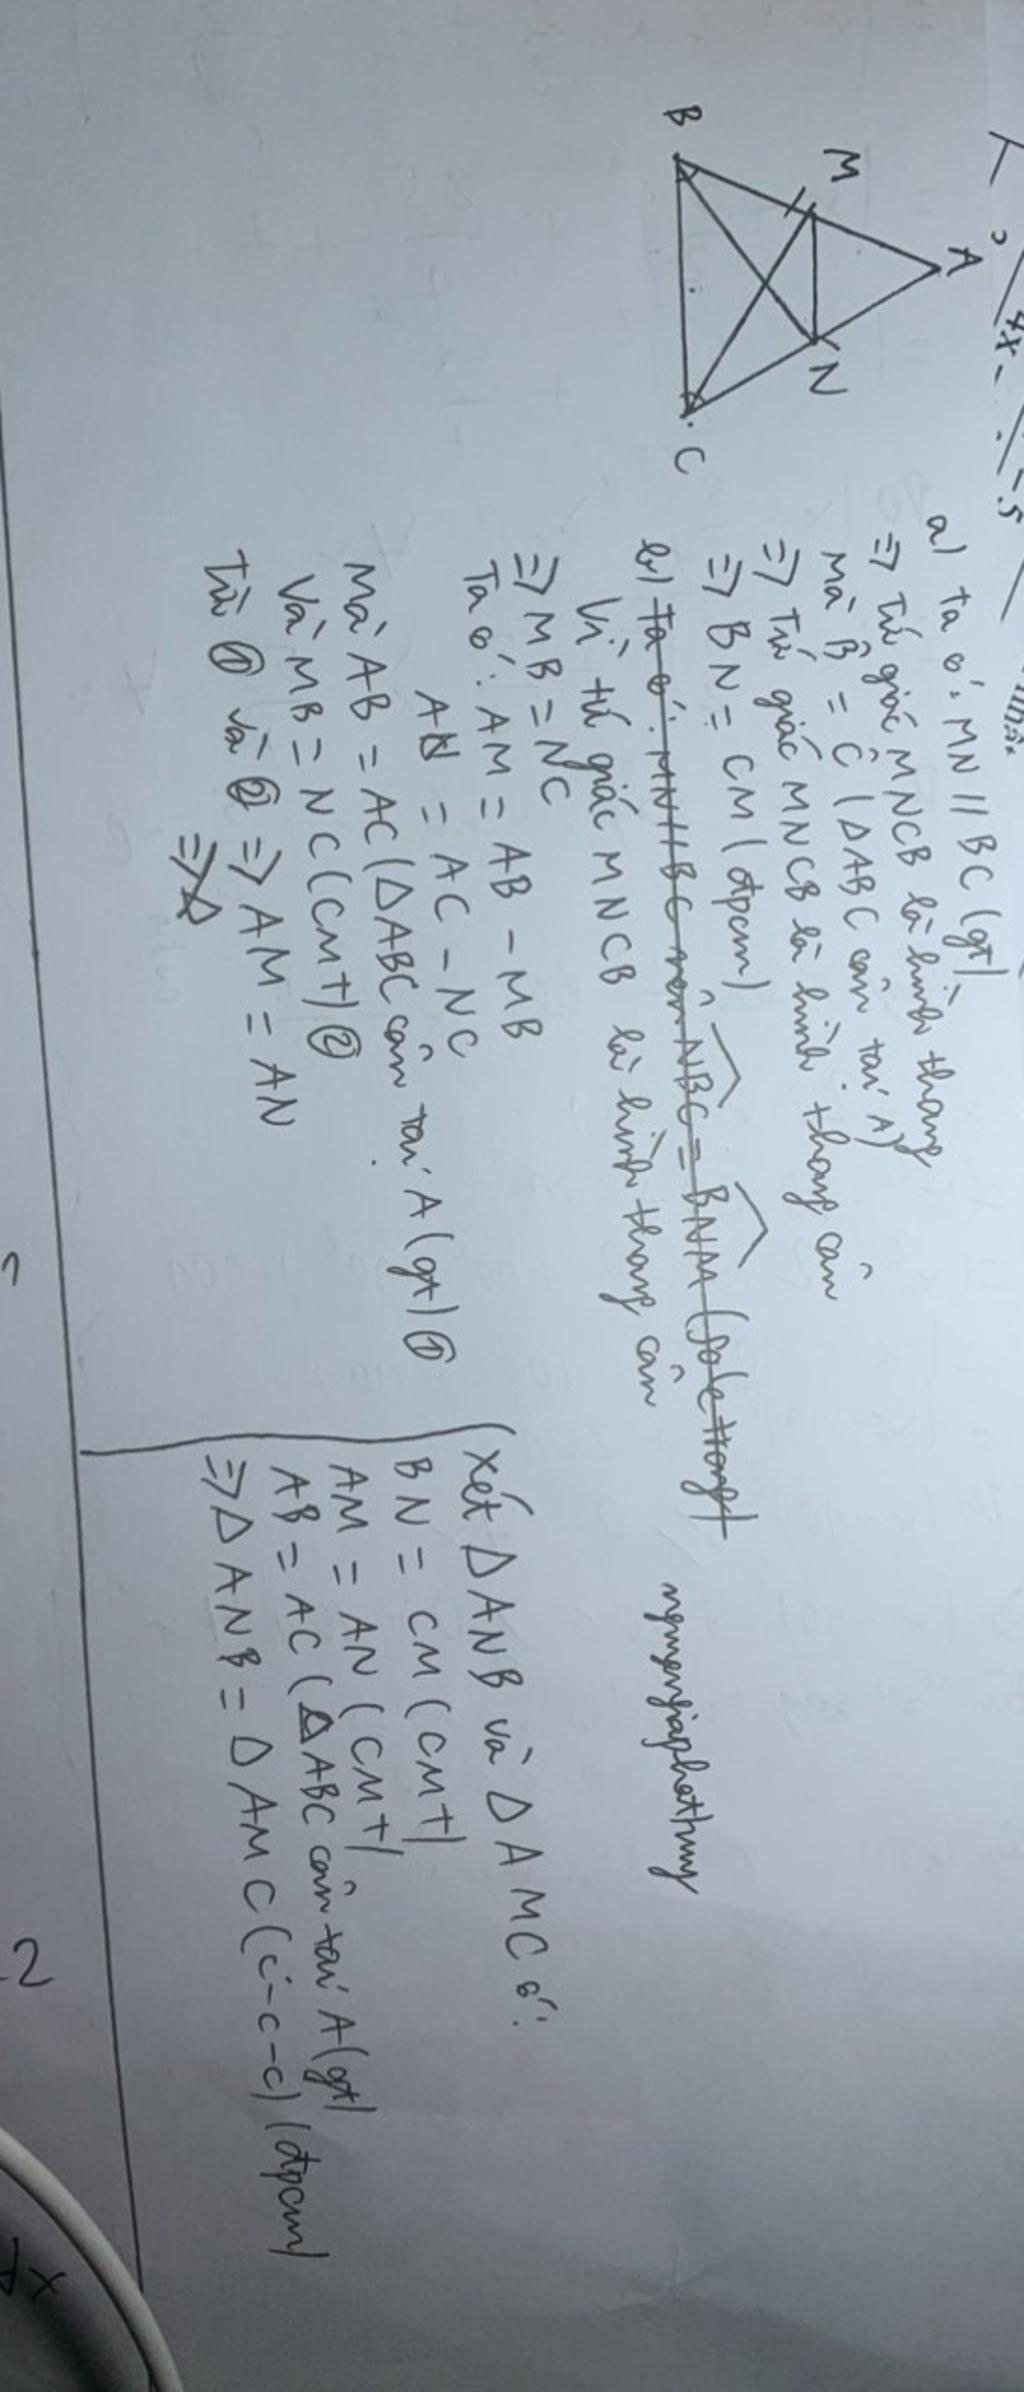 4x-
-5
A
M
N
B
C
a) Ta có: MN // BC (gt)
=> Tứ giác MNCB là hình thang
Mà B̂ = Ĉ (ΔABC cân tại A)
=> Tứ giác MNCB là hình thang cân
=> BN = CM (đpcm)
b) Ta có: MN // BC nên NBC = BNM (so le trong)
Vì tứ giác MNCB là hình thang cân
=> MB = NC
Ta có: AM = AB - MB
AN = AC - NC
Mà AB = AC (ΔABC cân tại A (gt) ①
Và MB = NC (CMT) ②
Từ ① và ② => AM = AN
=> Δ
nguyengiaphathuy
Xét ΔANB và ΔAMC có:
BN = CM (CMT)
AM = AN (CMT)
AB = AC (ΔABC cân tại A (gt)
=> ΔANB = ΔAMC (c-c-c) (đpcm)
2